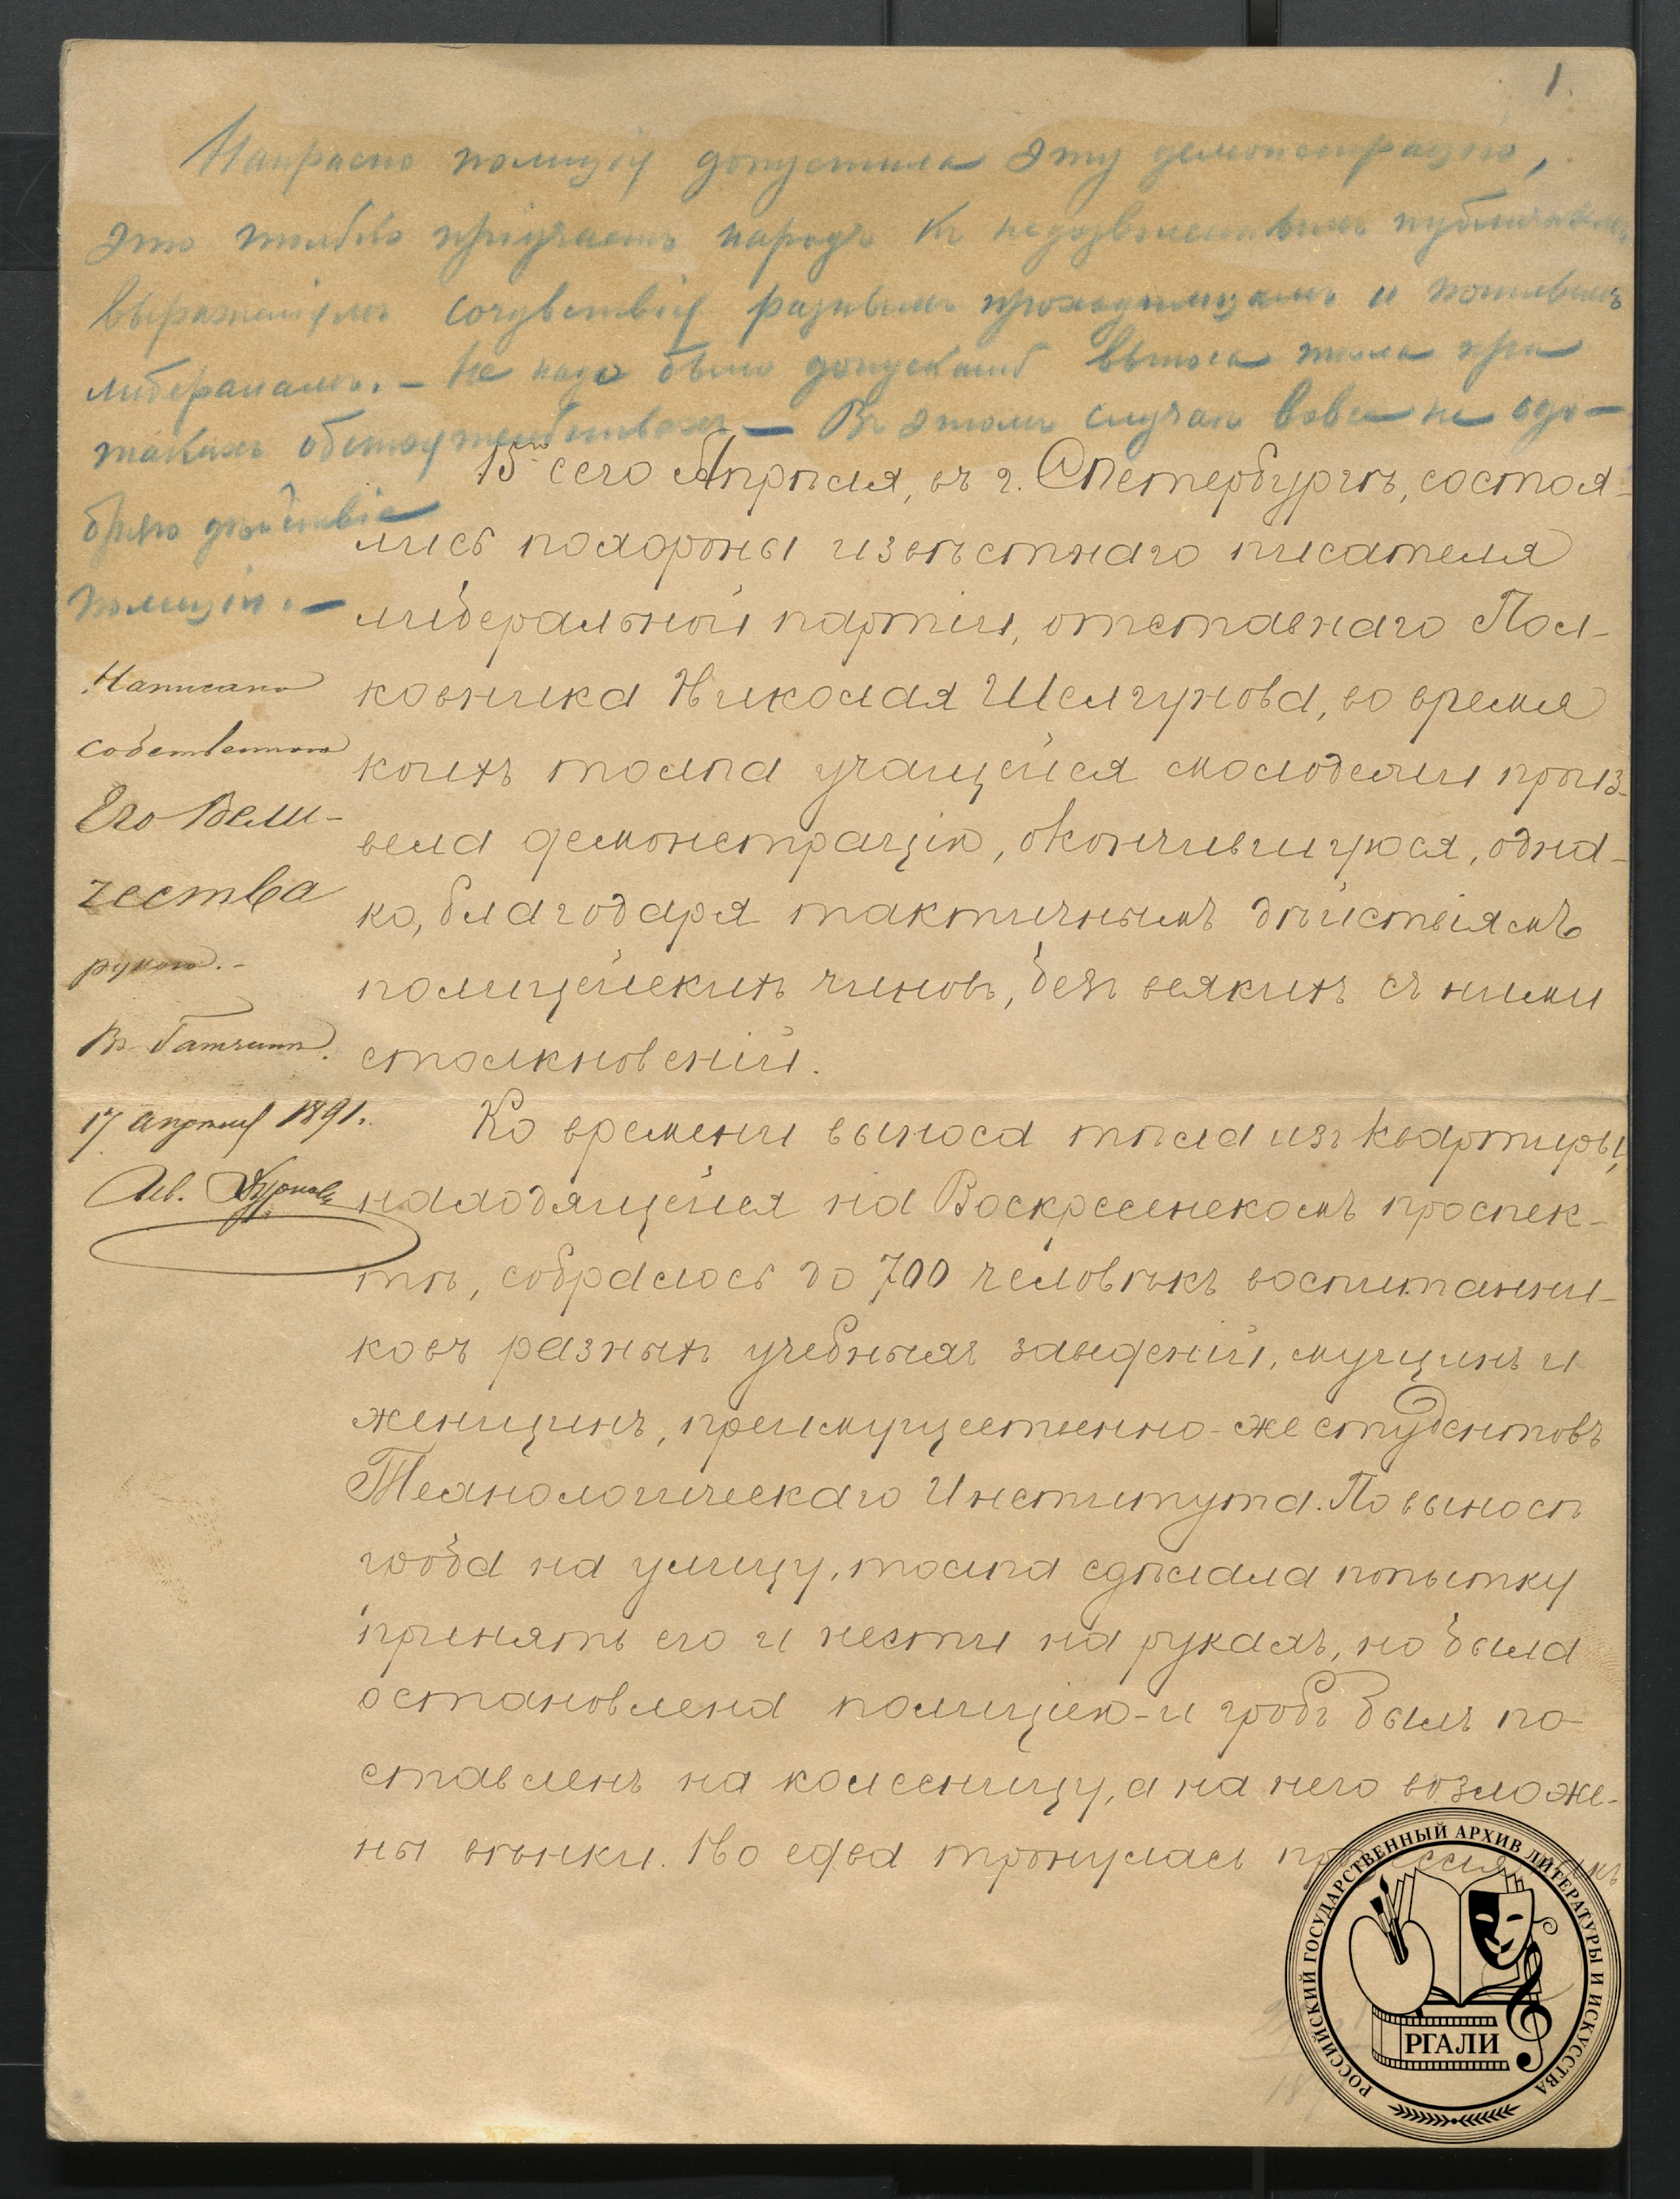 1.
Напрасно полиція допустила эту демонстрацію,
это только пріучаетъ народъ къ недозволеннымъ публичнымъ
выраженіямъ сочувствія разнымъ проходимцамъ и пошлымъ
либераламъ. — Не надо было допускать выноса тѣла при
такихъ обстоятельствахъ — Въ этомъ случаѣ вовсе не одо-
бряю дѣйствіе
полиціи. —
Написано
собственною
Его Вели-
чества
рукою. —
Въ Гатчинѣ.
17 апрѣля 1891.
Ив. Дурново
15го сего Апрѣля, въ г. СПетербургѣ, состоя-
лись похороны извѣстнаго писателя
либеральной партіи, отставнаго Пол-
ковника Николая Шелгунова, во время
коихъ толпа учащейся молодежи произ-
вела демонстрацію, окончившуюся, одна-
ко, благодаря тактичнымъ дѣйствіямъ
полицейскихъ чиновъ, безъ всякихъ съ ними
столкновеній.
Ко времени выноса тѣла изъ квартиры,
находящейся на Воскресенскомъ проспек-
тѣ, собралось до 700 человѣкъ воспитанни-
ковъ разныхъ учебныхъ заведеній, мущинъ и
женщинъ, преимущественно-же студентовъ
Технологическаго Института. По выносѣ
гроба на улицу, толпа сдѣлала попытку
принять его и нести на рукахъ, но была
остановлена полиціею - и гробъ былъ по-
ставленъ на колесницу, а на него возложе-
ны вѣнки. Но едва тронулась процессія
РОССИЙСКИЙ ГОСУДАРСТВЕННЫЙ АРХИВ ЛИТЕРАТУРЫ И ИСКУССТВА
РГАЛИ